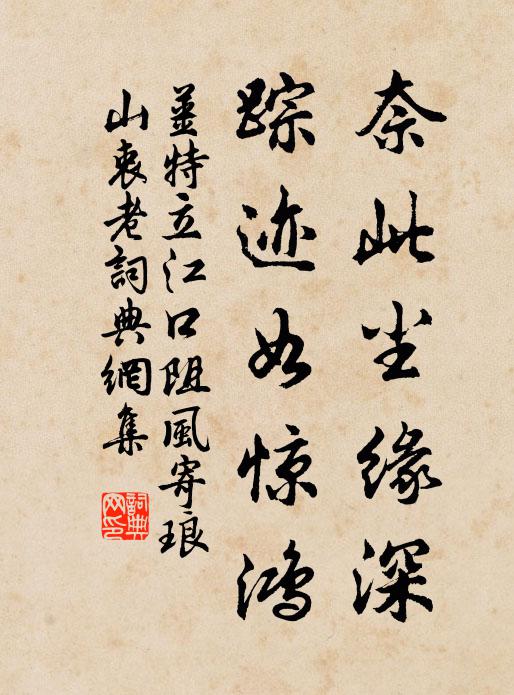 奈此尘缘深
踪迹如惊鸿
姜特立江口阻风寄琅
山衷老詞典網集
詞典网印